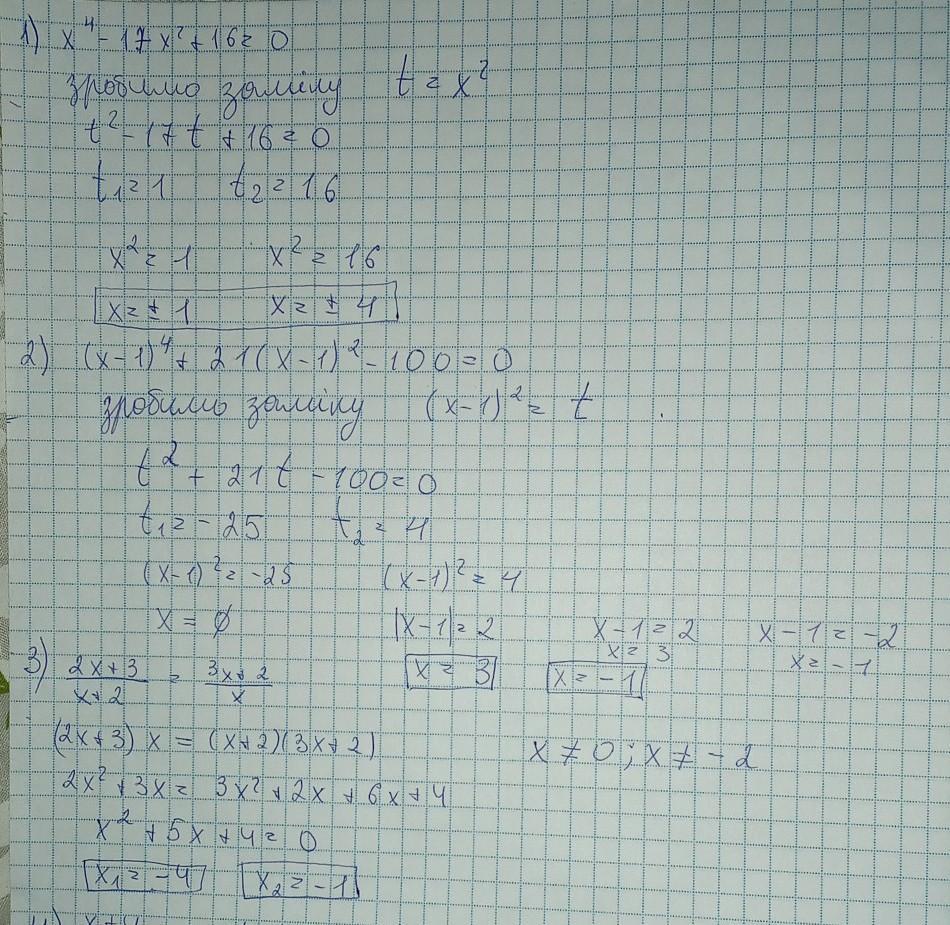 1) x⁴ - 17x² + 16 = 0
зробимо заміну t = x²
t² - 17t + 16 = 0
t₁ = 1 t₂ = 16
x² = 1 x² = 16
x = ± 1 x = ± 4
2) (x-1)⁴ + 21(x-1)² - 100 = 0
зробимо заміну (x-1)² = t
t² + 21t - 100 = 0
t₁ = -25 t₂ = 4
(x-1)² = -25 (x-1)² = 4
x = ∅ |x-1| = 2 x-1 = 2 x-1 = -2
x = 3 x = -1
x = 3 x = -1
3) (2x+3)/(x+2) = (3x+2)/x
(2x+3)x = (x+2)(3x+2) x ≠ 0; x ≠ -2
2x² + 3x = 3x² + 2x + 6x + 4
x² + 5x + 4 = 0
x₁ = -4 x₂ = -1